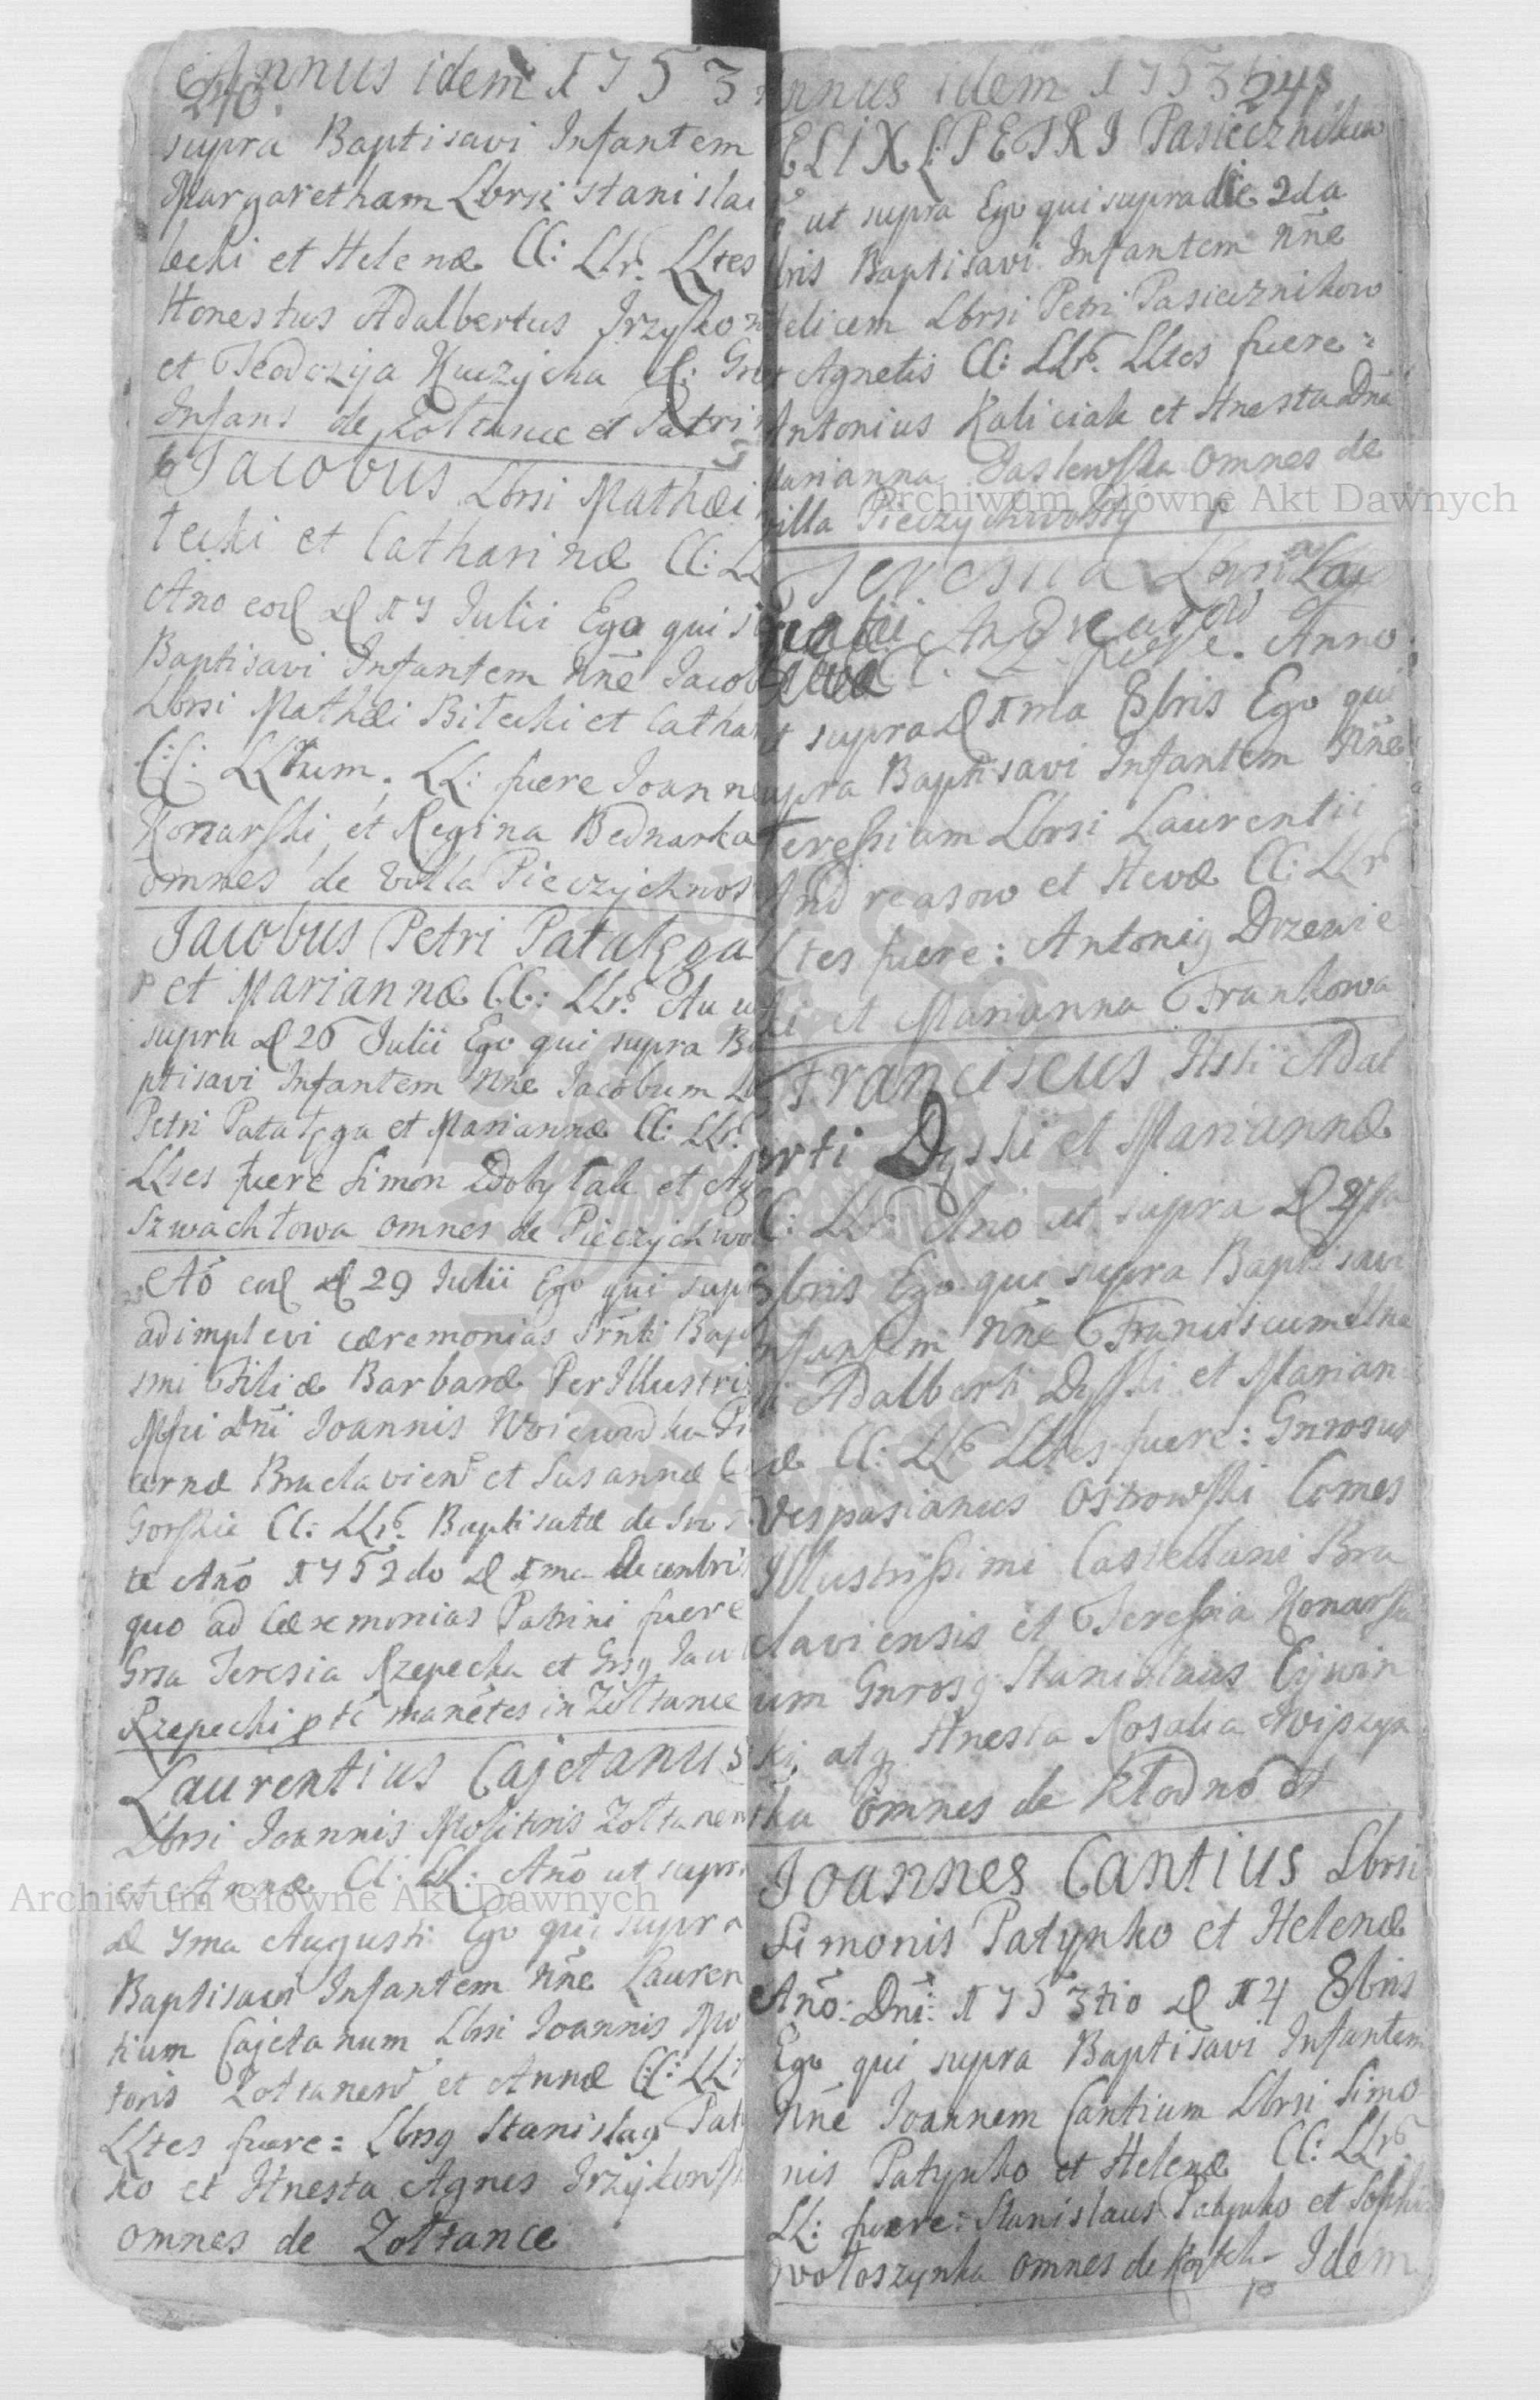 Annus idem 1753
240
supra Baptisavi Infantem
Margaretham Lbrsi Stanislai
lecki et Helenæ CC: LLr. LLtes
Honestus Adalbertus Jrzyko
et Teodozija Kuczycka
Infans de Zołtance et Patri
Jacobus Lbrsi Mathæi
tecki et Catharinæ CC: LL
Ano eod d 17 Julii Ego qui
Baptisavi Infantem Nne Jacob
Lbrsi Mathæi Bitecki et Catha
CC: LLrum. LL: fuere Joanne
Konarski et Regina Bednarka
omnes de Villa Pieczychwos
Jacobus Petri Patałęga
et Mariannæ CC: LLr. An ut
supra d 26 Julii Ego qui supra Ba
ptisavi Infantem Nne Jacobum Lb
Petri Patałęga et Mariannæ CC: LLr.
LLtes fuere Simon Zdobytak et Ag
Szwachtowa omnes de Pieczychwo
Ao eod d 29 Julii Ego qui supr
adimplevi cæremonias Srnti Bapt
smi Filiæ Barbaræ Per Illustris
Mfci Dni Joannis Woiewodka Pi
cernæ Braclavien et Susannæ
Gorskie CC: LLr. Baptisatæ de
te Ano 1752do d 1ma Decembris
quo ad Cæremonias Patrini fuere
Grsa Teresia Rzepecka et Grsq Jaco
Rzepecki manetes in Zołtance
Laurentius Cajetanus
Lbrsi Joannis Molitoris Zołtanen
et Annæ CC: LL: Ano ut supra
d 7ma Augusti Ego qui supra
Baptisavi Infantem Nne Lauren
tium Cajetanum Lbrsi Joannis Mo
toris Zołtanen et Annæ CC: LL
LLtes fuere: Lbrsq Stanislaq Paty
ko et Hnesta Agnes Jrzykows
omnes de Zołtance
nnus idem 1753 241
ELIX PETRI Pasiecznikow
ut supra Ego qui supra die 2da
bris Baptisavi Infantem Nne
elicem Lbrsi Petri Pasiecznikow
Agnetis CC: LLr. LLtes fuere:
Antonius Kaliciak et Hnesta Dna
arianna Paslewska Omnes de
villa Pieczychwosty
Teressia Lbrsi Lau
rentii Andreasow et
CC: LL fuere. Anno
ut supra d 1ma 8bris Ego qui
upra Baptisavi Infantem Nne
Teressiam Lbrsi Laurentii
Andreasow et Hevæ CC: LLr
Ltes fuere: Antoniq Drzewie
ki et Marianna Frankowa
Franciscus Hsti Adal
erti Dyski et Mariannæ
C: LLr: Ano ut supra d
8bris Ego qui supra Baptisavi
nfantem Nne Franciscum Hne
ti Adalberti Dyski et Marian
æ CC: LLr LLtes fuere: Gnrosus
Vespasianus Ostrowski Comes
Illustrissimi Castellani Bra
claviensis et Teressia Konarska
um Gnrosq Stanislaus Cywin
ki, atq Hnesta Rosalia Wyszyn
ska Omnes de Kłodno
Joannes Cantius Lbrsi
Simonis Patynko et Helenæ
Ano: Dni: 1753tio d 14 8bris
Ego qui supra Baptisavi Infantem
Nne Joannem Cantium Lbrsi Simo
nis Patynko et Helenæ CC: LLr
LL: fuere: Stanislaus Patynko et Sophi
Wołoszynka omnes de Idem
Archiwum Główne Akt Dawnych
Archiwum Główne Akt Dawnych